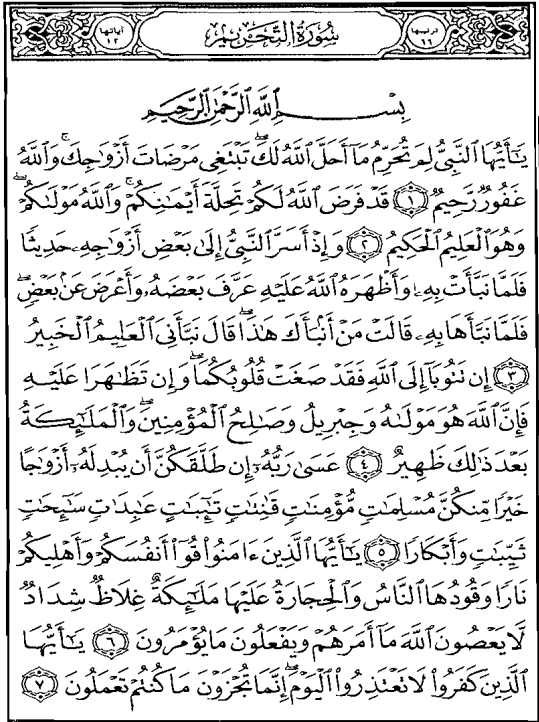 ترتيبها ٦٦ سُورَةُ التَّحْرِيمِ آياتها ١٢
بِسْمِ اللَّهِ الرَّحْمَٰنِ الرَّحِيمِ
يَٰٓأَيُّهَا ٱلنَّبِىُّ لِمَ تُحَرِّمُ مَآ أَحَلَّ ٱللَّهُ لَكَۖ تَبْتَغِى مَرْضَاتَ أَزْوَٰجِكَۚ وَٱللَّهُ
غَفُورٌ رَّحِيمٌ ۝١ قَدْ فَرَضَ ٱللَّهُ لَكُمْ تَحِلَّةَ أَيْمَٰنِكُمْۚ وَٱللَّهُ مَوْلَىٰكُمْۖ
وَهُوَ ٱلْعَلِيمُ ٱلْحَكِيمُ ۝٢ وَإِذْ أَسَرَّ ٱلنَّبِىُّ إِلَىٰ بَعْضِ أَزْوَٰجِهِۦ حَدِيثًا
فَلَمَّا نَبَّأَتْ بِهِۦ وَأَظْهَرَهُ ٱللَّهُ عَلَيْهِ عَرَّفَ بَعْضَهُۥ وَأَعْرَضَ عَنۢ بَعْضٍۖ
فَلَمَّا نَبَّأَهَا بِهِۦ قَالَتْ مَنْ أَنۢبَأَكَ هَٰذَاۖ قَالَ نَبَّأَنِىَ ٱلْعَلِيمُ ٱلْخَبِيرُ
۝٣ إِن تَتُوبَآ إِلَى ٱللَّهِ فَقَدْ صَغَتْ قُلُوبُكُمَاۖ وَإِن تَظَٰهَرَا عَلَيْهِ
فَإِنَّ ٱللَّهَ هُوَ مَوْلَىٰهُ وَجِبْرِيلُ وَصَٰلِحُ ٱلْمُؤْمِنِينَۖ وَٱلْمَلَٰٓئِكَةُ
بَعْدَ ذَٰلِكَ ظَهِيرٌ ۝٤ عَسَىٰ رَبُّهُۥٓ إِن طَلَّقَكُنَّ أَن يُبْدِلَهُۥٓ أَزْوَٰجًا
خَيْرًا مِّنكُنَّ مُسْلِمَٰتٍ مُّؤْمِنَٰتٍ قَٰنِتَٰتٍ تَٰٓئِبَٰتٍ عَٰبِدَٰتٍ سَٰٓئِحَٰتٍ
ثَيِّبَٰتٍ وَأَبْكَارًا ۝٥ يَٰٓأَيُّهَا ٱلَّذِينَ ءَامَنُوا۟ قُوٓا۟ أَنفُسَكُمْ وَأَهْلِيكُمْ
نَارًا وَقُودُهَا ٱلنَّاسُ وَٱلْحِجَارَةُ عَلَيْهَا مَلَٰٓئِكَةٌ غِلَاظٌ شِدَادٌ
لَّا يَعْصُونَ ٱللَّهَ مَآ أَمَرَهُمْ وَيَفْعَلُونَ مَا يُؤْمَرُونَ ۝٦ يَٰٓأَيُّهَا
ٱلَّذِينَ كَفَرُوا۟ لَا تَعْتَذِرُوا۟ ٱلْيَوْمَۖ إِنَّمَا تُجْزَوْنَ مَا كُنتُمْ تَعْمَلُونَ ۝٧